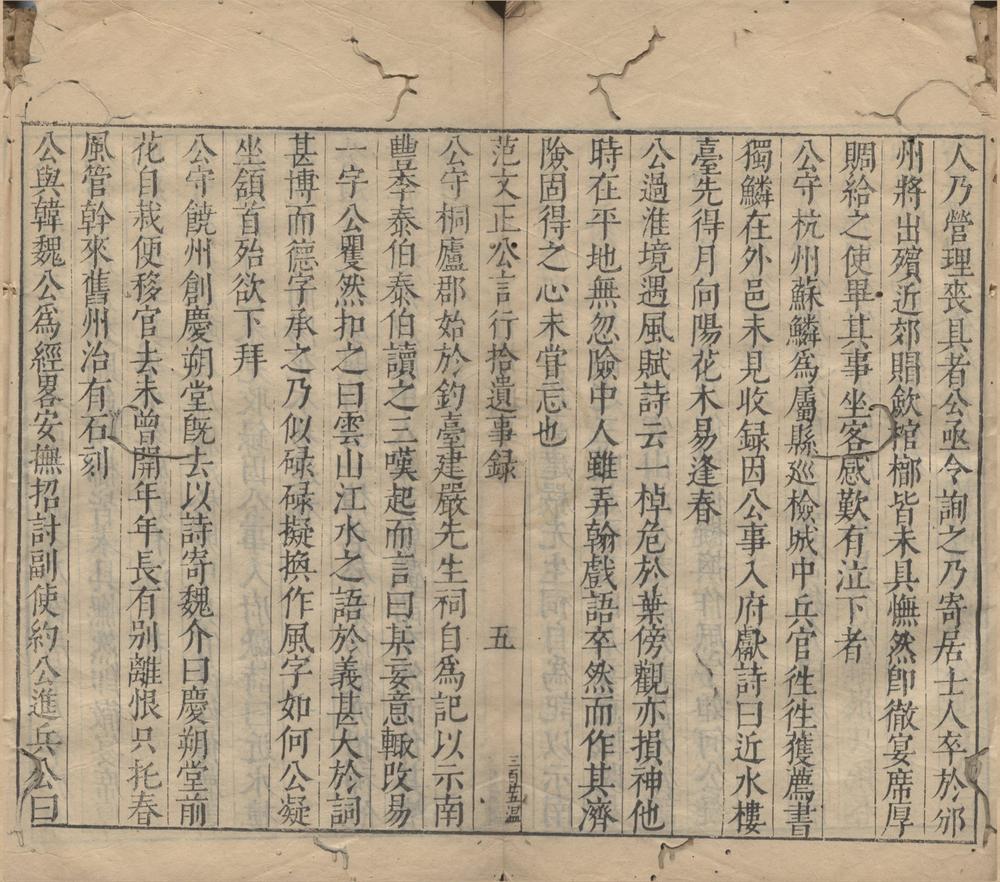 人乃營理喪具者公亟令詢之乃寄居士人卒於邠
州將出殯近郊賵歛棺槨皆未具憮然卽徹宴席厚
賙給之使畢其事坐客感歎有泣下者
公守杭州蘇鱗爲屬縣巡檢城中兵官徃徃獲薦書
獨鱗在外邑未見收録因公事入府獻詩曰近水樓
臺先得月向陽花木易逢春
公過淮境遇風賦詩云一棹危於葉傍觀亦損神他
時在平地無忽險中人雖弄翰戲語卒然而作其濟
險固得之心未嘗忘也
范文正公言行拾遺事録
五
三百五
温
公守桐廬郡始於釣臺建嚴先生祠自爲記以示南
豐李泰伯泰伯讀之三嘆起而言曰某妄意輒改易
一字公瞿然扣之曰雲山江水之語於義甚大於詞
甚博而德字承之乃似碌碌擬換作風字如何公凝
坐頷首殆欲下拜
公守饒州創慶朔堂旣去以詩寄魏介曰慶朔堂前
花自栽便移官去未曾開年年長有别離恨只托春
風管幹來舊州治有石刻
公與韓魏公爲經畧安撫招討副使約公進兵公曰